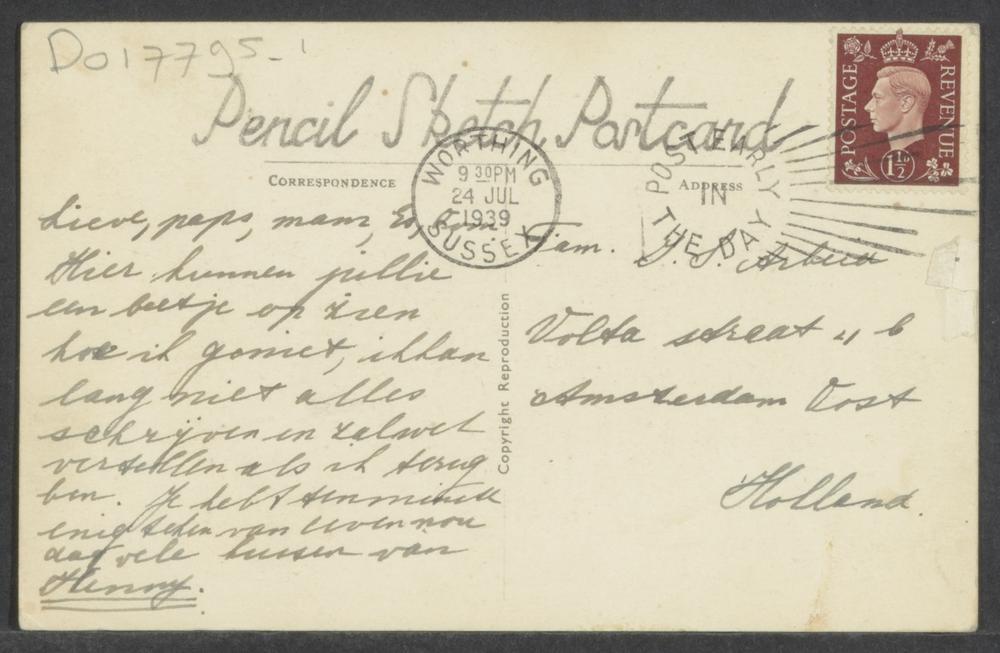 Do17795-1
Pencil Sketch Postcard
CORRESPONDENCE
ADDRESS
WORTHING
9 30PM
24 JUL
1939
SUSSEX
POST EARLY
IN
THE DAY
POSTAGE
REVENUE
1½D
Lieve, paps, mams,
Hier kunnen jullie
een beetje op zien
hoe ik geniet, ik kan
lang niet alles
schrijven en zal wel
vertellen als ik terug
ben. Je hebt tenminste
enig teken van leven nou
dag vele kussen van
Henny.
Copyright Reproduction
Fam.
Volta straat 11 b
Amsterdam Oost
Holland.